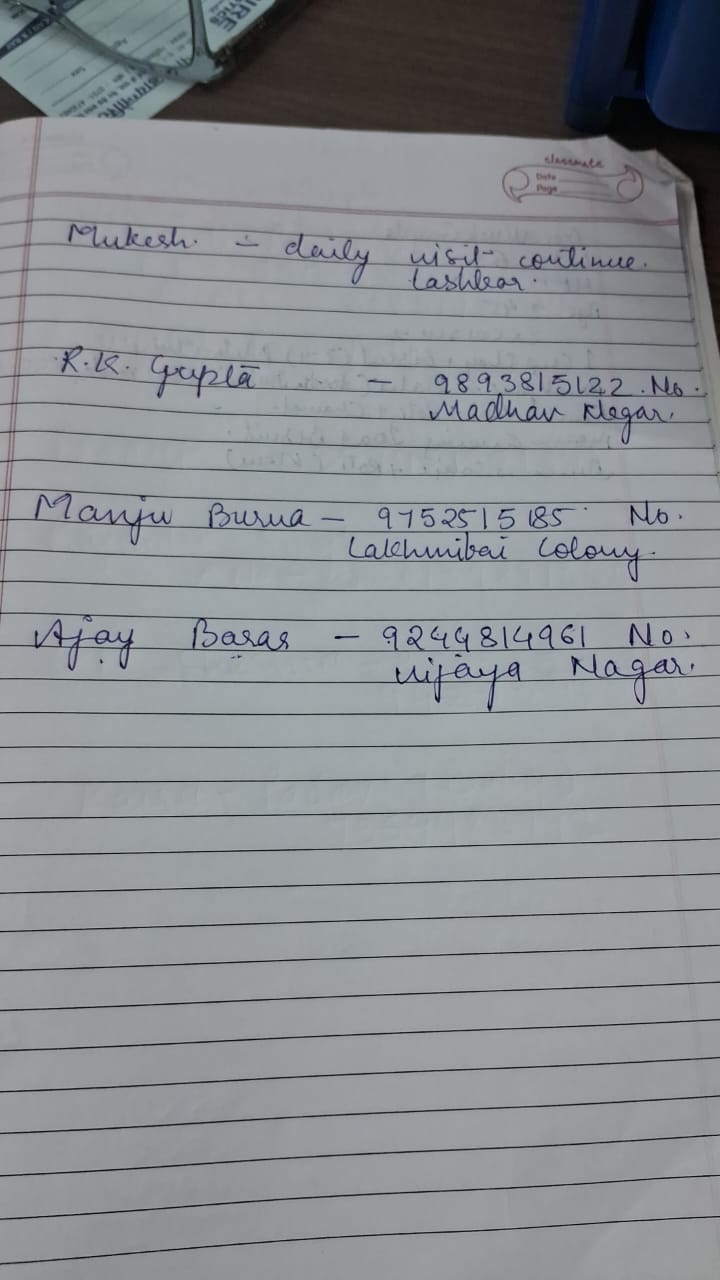 classmate
Date
Page
Mukesh. - daily visit continue.
Lashkar.
R.K. Gupta - 9893815122. No.
Madhav Nagar.
Manju Burua - 9752515185 No.
Lakhmibai Colony.
Ajay Baras - 9244814961 No.
Vijaya Nagar.